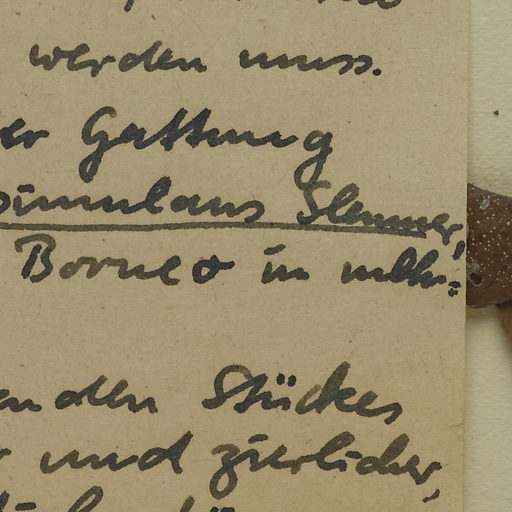 werden muss.
er Gattung
simulans Slemmer,
Borneo in mehr=
anden Stückes
und zierlicher,